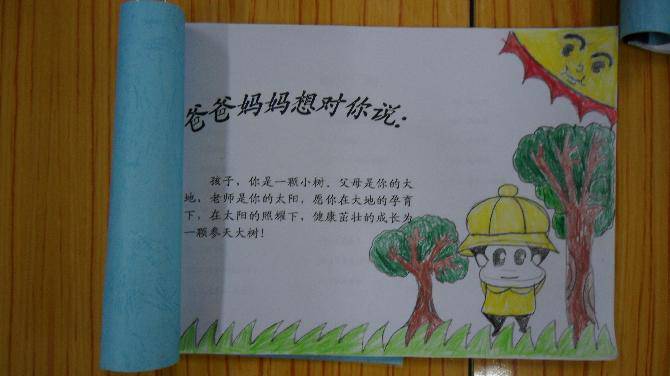 爸爸妈妈想对你说:
孩子,你是一颗小树.父母是你的大
地,老师是你的太阳,愿你在大地的孕育
下,在太阳的照耀下,健康茁壮的成长为
一颗参天大树!